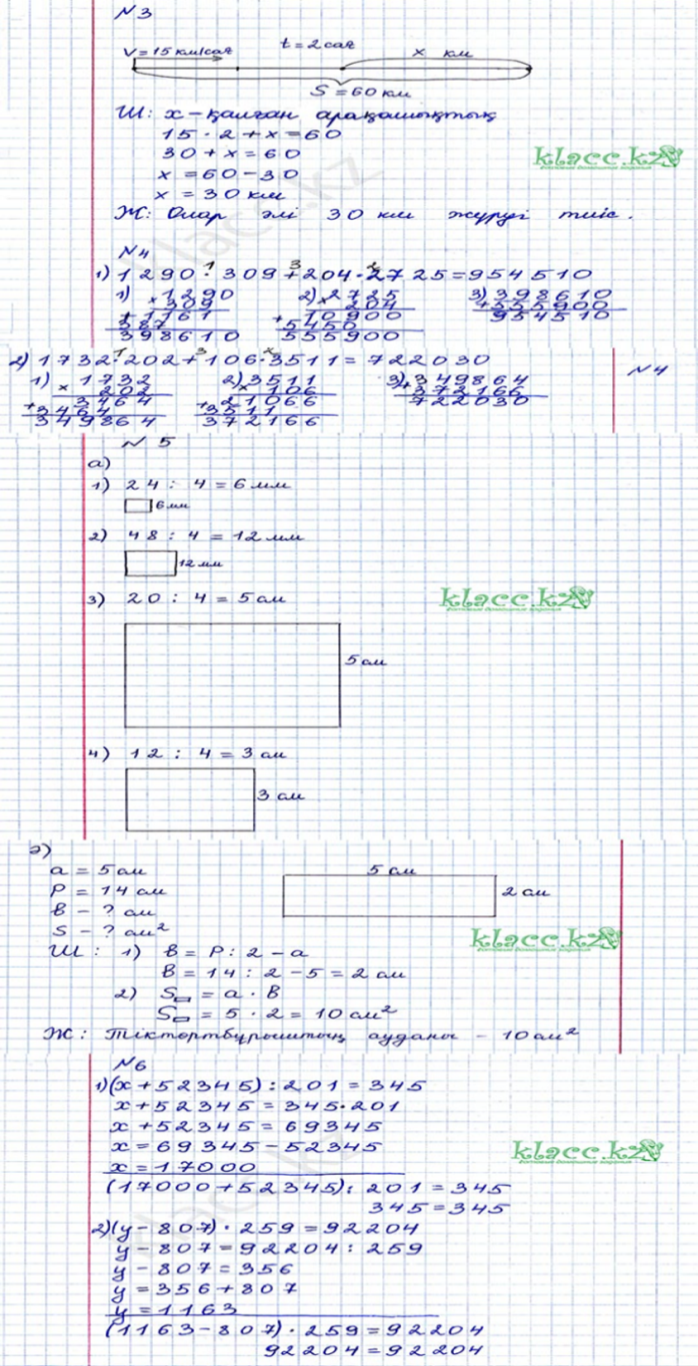 №3
V=15 км/сағ t=2 сағ x км
S=60 км
Ш: x-қалған арақашықтық
15·2+x=60
30+x=60
x=60-30
x=30 км
klacc.kz
Ж: Олар әлі 30 км жүруі тиіс.
№4
1) 1290·309+204·2725=954510
1 3 2
1) 1290 2) 2725 3) 398610
×309 ×204 +555900
+1161 10900 954510
387 +5450
398610 555900
2) 1732·202+106·3511=722030 №4
1 3 2
1) 1732 2) 3511 3) 349864
×202 ×106 +372166
3464 21066 722030
+3464 +3511
349864 372166
№5
а)
1) 24:4=6 мм
6 мм
2) 48:4=12 мм
12 мм
3) 20:4=5 см
klacc.kz
5 см
4) 12:4=3 см
3 см
ә)
a=5 см 5 см
P=14 см 2 см
в-? см
S-? см²
klacc.kz
Ш: 1) в=P:2-a
в=14:2-5=2 см
2) S▭=a·в
S▭=5·2=10 см²
Ж: Тіктөртбұрыштың ауданы - 10 см²
№6
1) (x+52345):201=345
x+52345=345·201
x+52345=69345
x=69345-52345
klacc.kz
x=17000
(17000+52345):201=345
345=345
2) (y-807)·259=92204
y-807=92204:259
y-807=356
y=356+807
y=1163
(1163-807)·259=92204
92204=92204